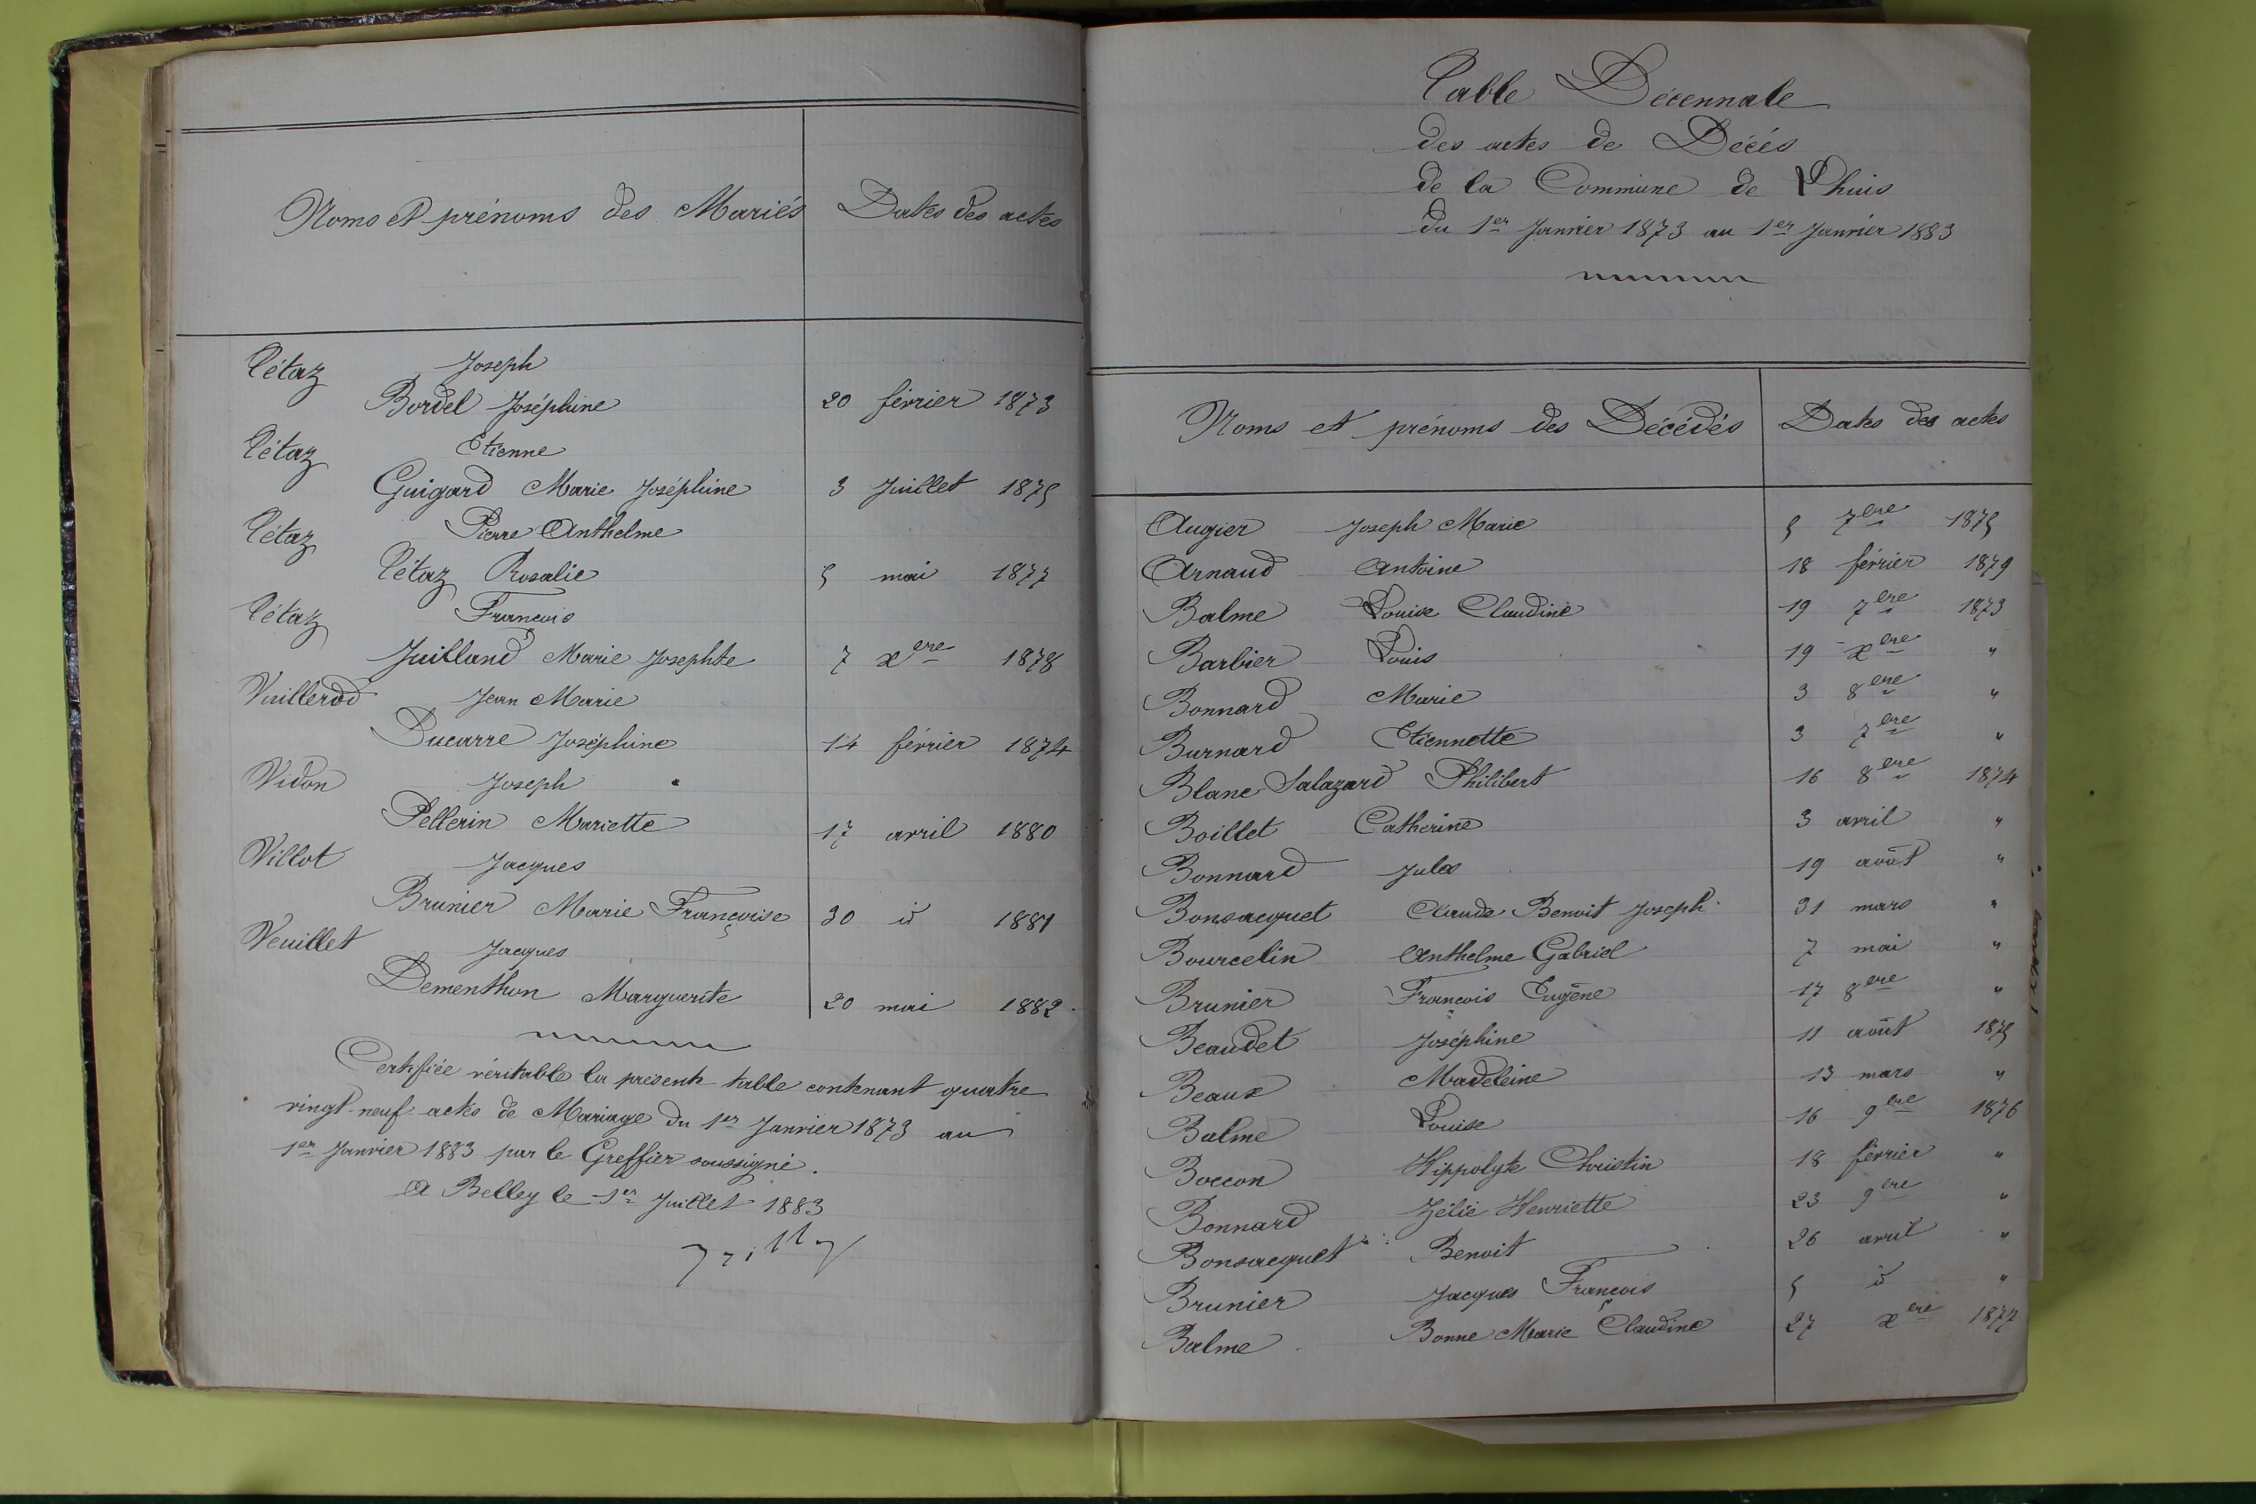 Noms et prénoms des Mariés Dates des actes
Tétaz Joseph
Bordel Joséphine 20 février 1873
Tétaz Etienne
Guigard Marie Joséphine 3 Juillet 1875
Tétaz Pierre Anthelme
Tétaz Rosalie 5 mai 1877
Tétaz François
Juilland Marie Josephte 7 xbre 1878
Vuillerod Jean Marie
Ducarre Joséphine 14 février 1874
Vidon Joseph
Pellerin Mariette 17 avril 1880
Villot Jacques
Brunier Marie Françoise 30 id 1881
Veuillet Jacques
Dementhon Marguerite 20 mai 1882
Certifiée véritable la présente table contenant quatre
vingt-neuf actes de Mariage du 1er Janvier 1873 au
1er Janvier 1883 par le Greffier soussigné.
A Belley le 1er Juillet 1883
Table Décennale
des actes de Décés
de la Commune de Lhuis
du 1er Janvier 1873 au 1er Janvier 1883
Noms et prénoms des Décédés Dates des actes
Augier Joseph Marie 5 7bre 1875
Arnaud Antoine 18 février 1879
Balme Louise Claudine 19 7bre 1873
Barbier Louis 19 xbre "
Bonnard Marie 3 8bre "
Burnard Etiennette 3 7bre "
Blanc Salazard Philibert 16 8bre 1874
Boillet Catherine 3 avril "
Bonnard Jules 19 août "
Bonsacquet Claude Benoit Joseph 31 mars "
Bourcelin Anthelme Gabriel 7 mai "
Brunier François Eugène 17 8bre "
Beaudet Joséphine 11 août 1875
Beaux Madeleine 13 mars "
Balme Louise 16 9bre 1876
Boccon Hippolyte Christin 18 février "
Bonnard Zélie Henriette 23 9bre "
Bonsacquet Benoit 26 avril "
Brunier Jacques François 5 id "
Balme Bonne Marie Claudine 27 xbre 1877